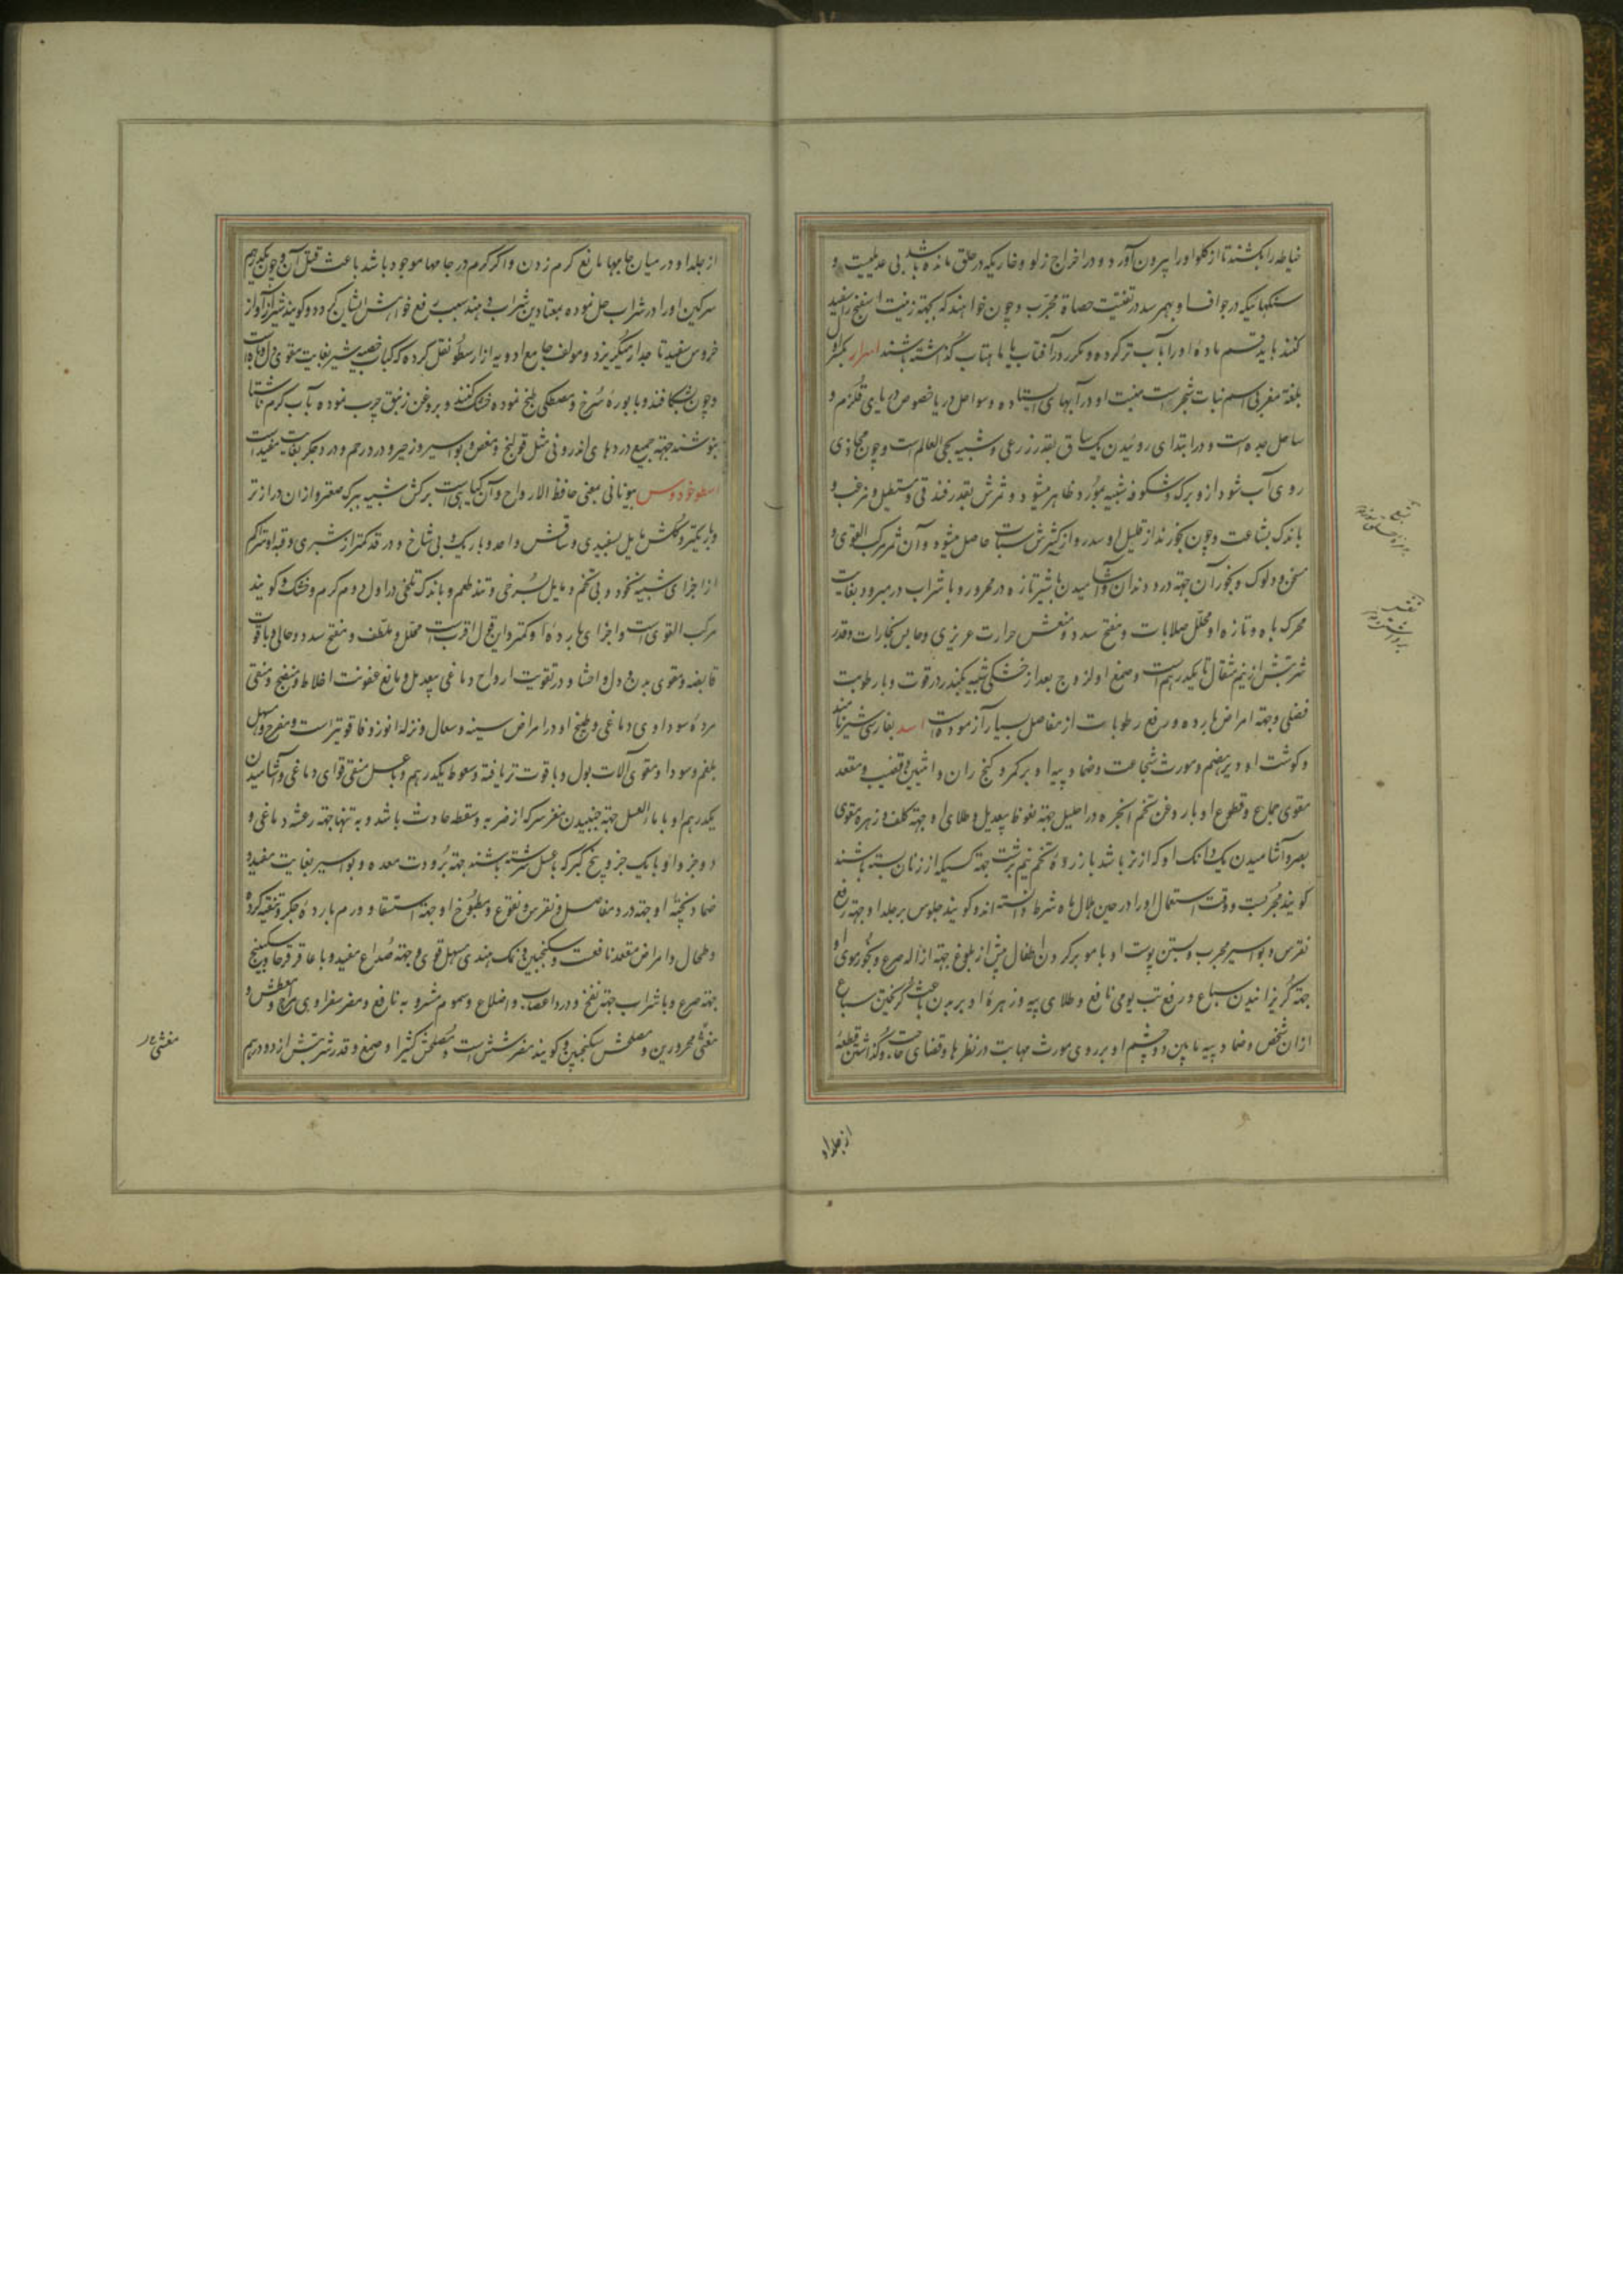 خیاطه را بکشند تا از کلو او را بیرون آورد و در اخراج زلو و خاریکه در حلق مانده باشد بی عدیلست و
سنکهائیکه در جواف او بهمرسد در تفتیت حصاة مجرب و چون خواهند که بجهة زینت اسفنج را سفید
کنند باید قسم ماده او را بآب تر کرده و مکرر در آفتاب یا ماهتاب گذاشته باشند اسرار بکسر اول
بلغة مغربی اسم نبات شجریست منبت او در آبهای ایستاده و سواحل دریا خصوص دریای قلزم و
ساحل جده است و در ابتدای روئیدن یک ساق بقدر زرعی و شبیه بحی العالم است و چون محاذی
روی آب شود ازو برک و شکوفه شبیه بمورد ظاهر میشود و ثمرش بقدر فندقی و مستطیل و مزغب و
باندک بشاعت و چون بخورند از قلیل او سدر و از کثیرش سبات حاصل میشود و آن ثمر مرکب القوی و
مسخن و دلوک و بخور آن جهة درد دندان و آشامیدن با شیر تازه در محرور و با شراب در مبرود بغایت
محرک باه و تازه او محلل صلابات و مفتح سدد و منعش حرارت غریزی و حابس بخارات و قدر
شربتش از نیم مثقال تا یکدرهم است و صمغ او لزوج بعد از خشکی شبیه بکندر در قوت و با رطوبت
فضلی و جهة امراض بارده و رفع رطوبات از مفاصل بسیار آزموده است اسد بفارسی شیر نامند
و کوشت او دیر هضم و مورث شجاعت و ضماد پیه او بر کمر و کنج ران و انثیین و قضیب و مقعد
مقوی جماع و قطوع او با روغن تخم انجره در احلیل جهة نعوظ بیعدیل و طلای او جهة کلف و زهره مقوی
بصر و آشامیدن یک دانک او که از نر باشد با زرده تخم نیم برشت جهة کسیکه از زنان بسته باشند
کویند مجربست و وقت استعمال او را در حین هلال ماه شرط دانسته اند و کویند جلوس بر جلد او جهة رفع
نقرس و بواسیر مجرب و بستن پوست او با مو بر کردن اطفال پیش از بلوغ جهة ازاله صرع و بخور موی او
جهة گریزانیدن سباع و رفع تب یومی نافع و طلای پیه و زهره او بر بدن باعث گریختن سباع
از آن شخص و ضماد پیه مابین دو چشم او بر روی مورث مهابت در نظرها و قضای حاجت و گذاشتن قطعه
از جلد او
از جلد او در میان جامها مانع کرم زدن و اگر کرم در جامها موجود باشد باعث قتل آن و چون یکدرهم
سرکین او را در شراب حل نموده بمعتادین شراب دهند سبب رفع خواهش ایشان گردد و کویند شیر از آواز
خروس سفید تا جدار میگریزد و مولف جامع ادویه از ارسطو نقل کرده که کباب خصیه شیر بغایت مقوی دل و باه است
و چون بشکافند و با بوره سرخ و مصطکی طبخ نموده خشک کنند و بروغن زنبق چرب نموده بآب کرم ناشتا
بنوشند جهة جمیع دردهای اندرونی مثل قولنج و مغص و بواسیر و زحیر و درد رحم و درد جگر بغایت مفید است
اسطوخودوس بیونانی بمعنی حافظ الارواح و آن کیاهی است برکش شبیه ببرک صعتر و از آن درازتر
و باریکتر و کلش مایل بسفیدی و ساقش واحد و باریک و بی شاخ و در قد کمتر از شبری و قبه او متراکم
از اجزای شبیه بخود و بی تخم و مایل بسرخی و تند طعم و باندک تلخی در اول دوم کرم و خشک و کویند
مرکب القوی است و اجزای بارده او کمتر و این قول اقربست محلل و ملطف و مفتح سدد و جالی و با قوت
قابضه و مقوی بدن و دل و احشا و در تقویت ارواح دماغی بیعدیل و مانع عفونت اخلاط و منضج و منقی
مرده سوداوی دماغی و طبیخ او در امراض سینه و سعال و نزله از زوفا قویتر است و مفرح و مسهل
بلغم و سودا و مقوی آلات بول و با قوت تریاقیه و سعوط یکدرهم و با عسل منقی قوای دماغی و آشامیدن
یکدرهم او با ماء العسل جهة جنبیدن مغز سر که از ضربه و سقطه حادث باشد و به تنها جهة رعشه دماغی و
دو جزو او با یک جزو بیخ کبر که با عسل سرشته باشند جهة برودت معده و بواسیر بغایت مفید و
ضماد پخته او جهة درد مفاصل و نقرس و نقوع و مطبوخ او جهة استسقا و ورم بارده جکر و تنقیه کرده
و طحال و امراض مقعد نافعست و با سکنجبین و نمک هندی مسهل قوی و جهة صداع مفید و با عاقرقرحا و سکبینج
جهة صرع و با شراب جهة نفخ و درد اعصاب و اضلاع و سموم مشروبه نافع و مضر صفراوی مزاج و معطش و
مغثی محرورین و مصلحش سکنجبین و کویند مضر شش است و مصلحش کتیرا و صمغ و قدر شربتش از دو درهم